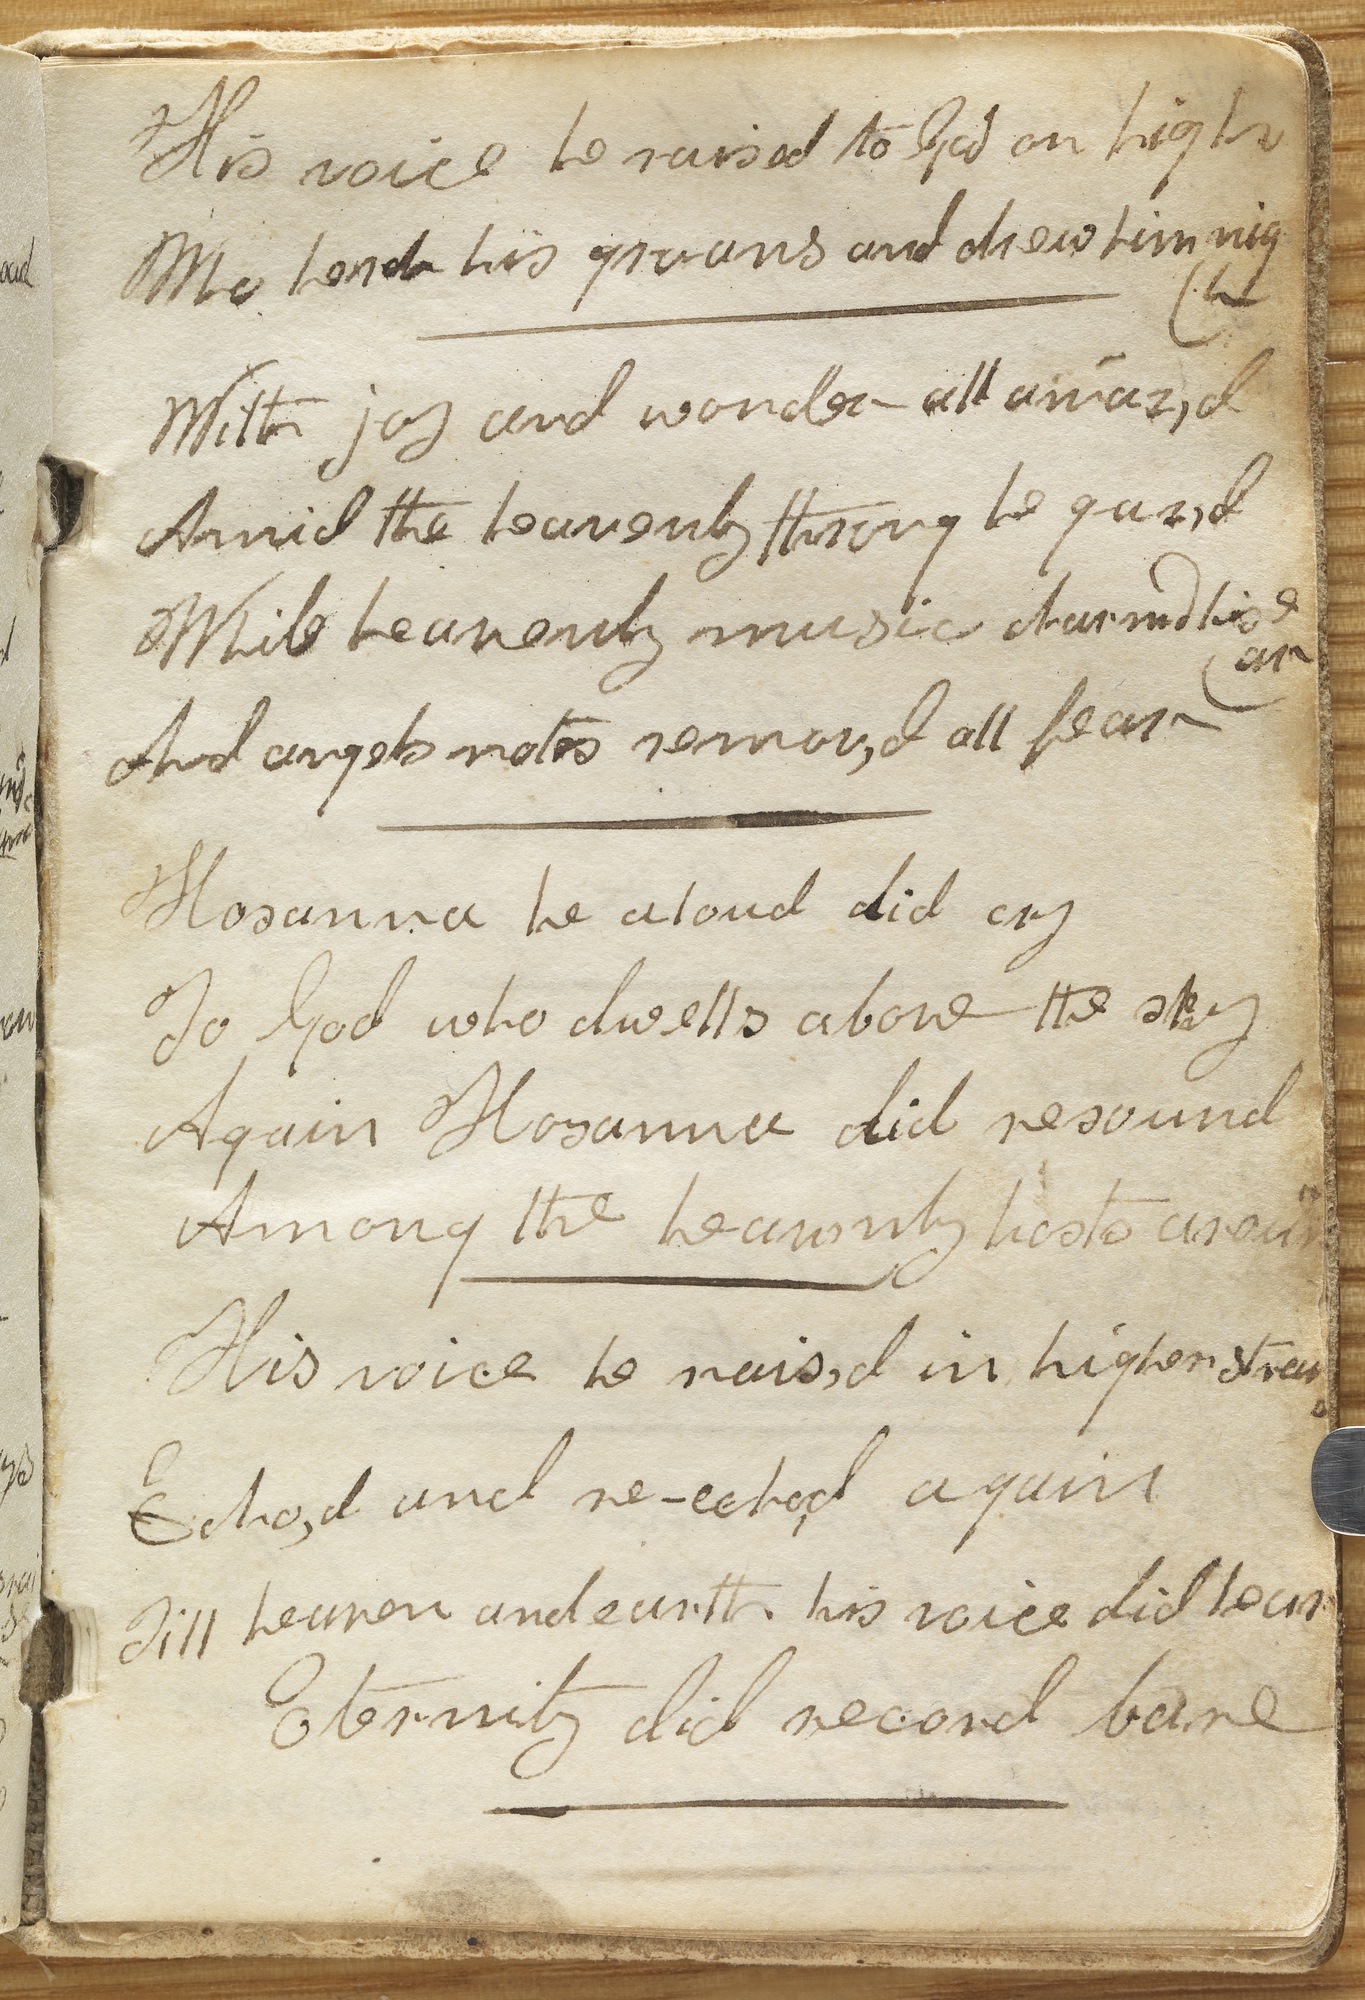 His voice he raised to God on high
Who herd his groans and drew him nig
(h
With joy and wonder all amaz,d
Amid the heavenly throng he gaz,d
While heavenly music charmd his e
(ar
And angels notes remov,d all fear
Hosanna he aloud did cry
To God who dwells above the sky
Again Hosanna did resound
Among the heavenly hosts aroun
His voice he rais,d in higher strain
s
Echo,d and re-echo,d again
Till heaven and earth his voice did hear
Eternity did record bare